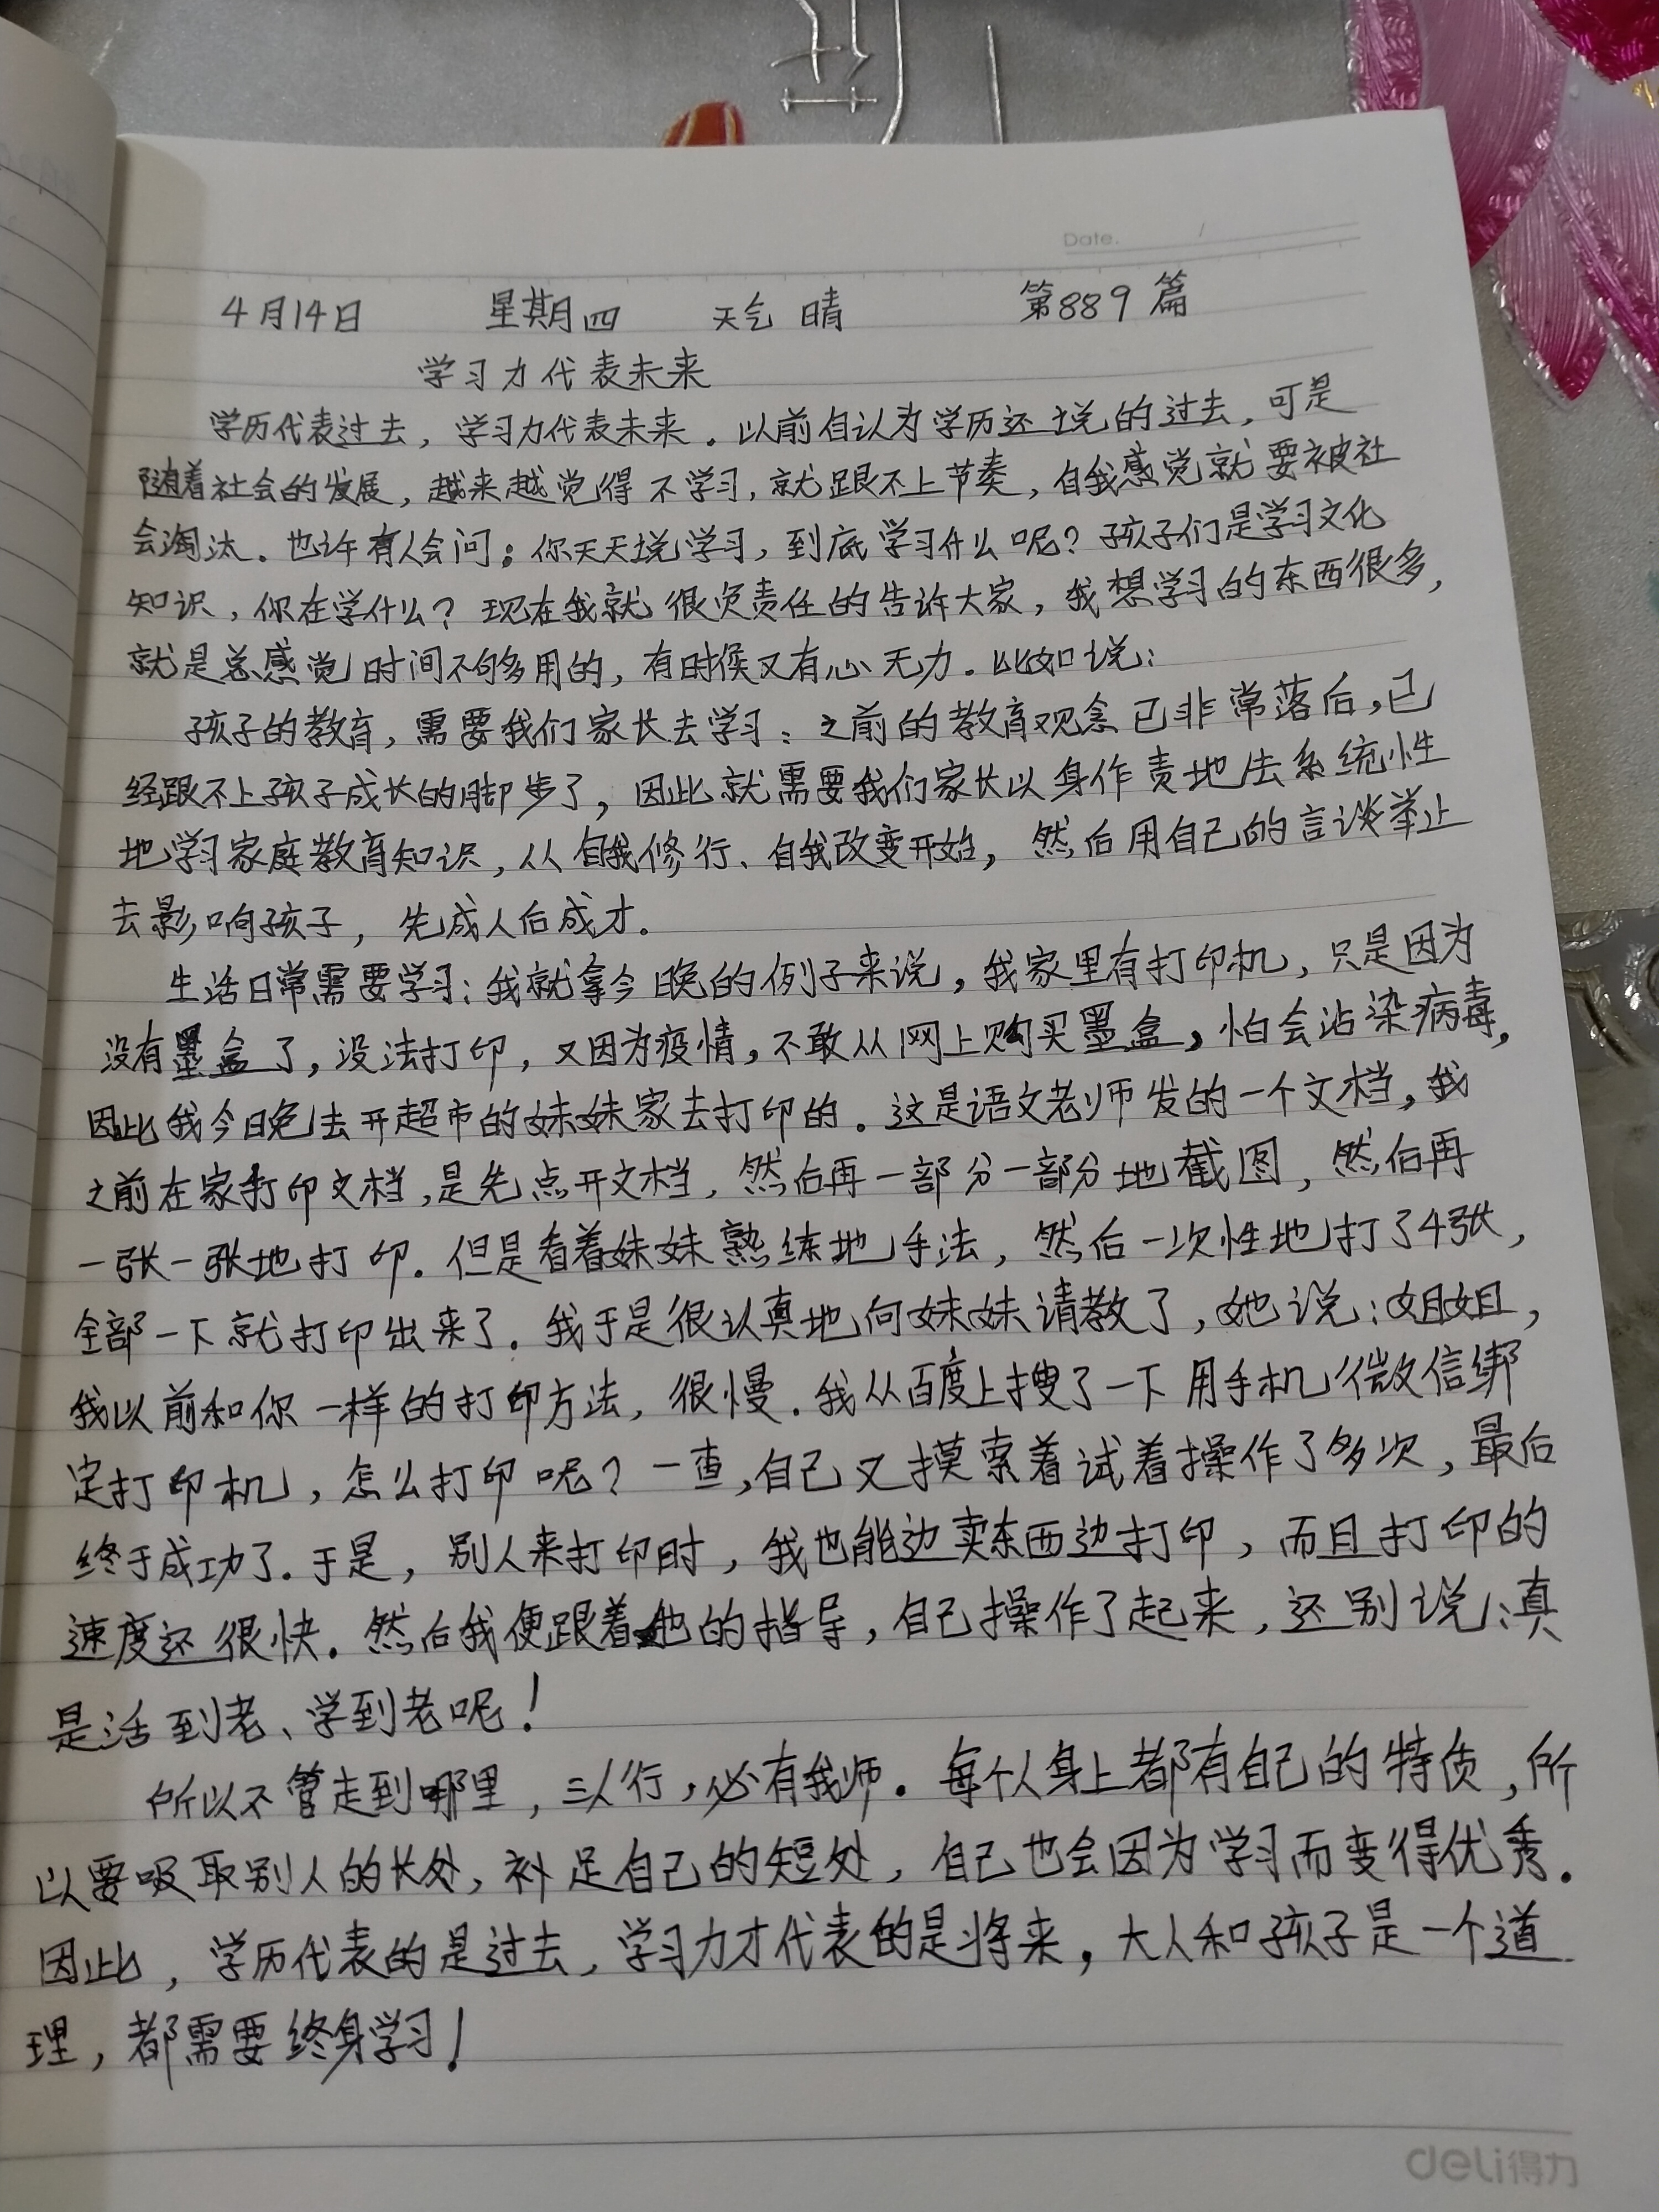 Date. /
4月14日 星期四 天气 晴 第889篇
学习力代表未来
学历代表过去，学习力代表未来。以前自认为学历还说的过去，可是
随着社会的发展，越来越觉得不学习，就跟不上节奏，自我感觉就要被社
会淘汰。也许有人会问：你天天说学习，到底学习什么呢？孩子们是学习文化
知识，你在学什么？现在我就很负责任的告诉大家，我想学习的东西很多，
就是总感觉时间不够多用的，有时候又有心无力。比如说：
孩子的教育，需要我们家长去学习：之前的教育观念已非常落后，已
经跟不上孩子成长的脚步了，因此就需要我们家长以身作责地去系统性
地学习家庭教育知识，从自我修行、自我改变开始，然后用自己的言谈举止
去影响孩子，先成人后成才。
生活日常需要学习：我就拿今晚的例子来说，我家里有打印机，只是因为
没有墨盒了，没法打印，又因为疫情，不敢从网上购买墨盒，怕会沾染病毒，
因此我今晚去开超市的妹妹家去打印的。这是语文老师发的一个文档，我
之前在家打印文档，是先点开文档，然后再一部分一部分地截图，然后再
一张一张地打印。但是看着妹妹熟练地手法，然后一次性地打了4张，
全部一下就打印出来了。我于是很认真地向妹妹请教了，她说：姐姐，
我以前和你一样的打印方法，很慢。我从百度上搜了一下用手机微信绑
定打印机，怎么打印呢？一查，自己又摸索着试着操作了多次，最后
终于成功了。于是，别人来打印时，我也能边卖东西边打印，而且打印的
速度还很快。然后我便跟着她的指导，自己操作了起来，还别说，真
是活到老、学到老呢！
所以不管走到哪里，三人行，必有我师。每个人身上都有自己的特质，所
以要吸取别人的长处，补足自己的短处，自己也会因为学习而变得优秀。
因此，学历代表的是过去，学习力才代表的是将来，大人和孩子是一个道
理，都需要终身学习！
deli得力